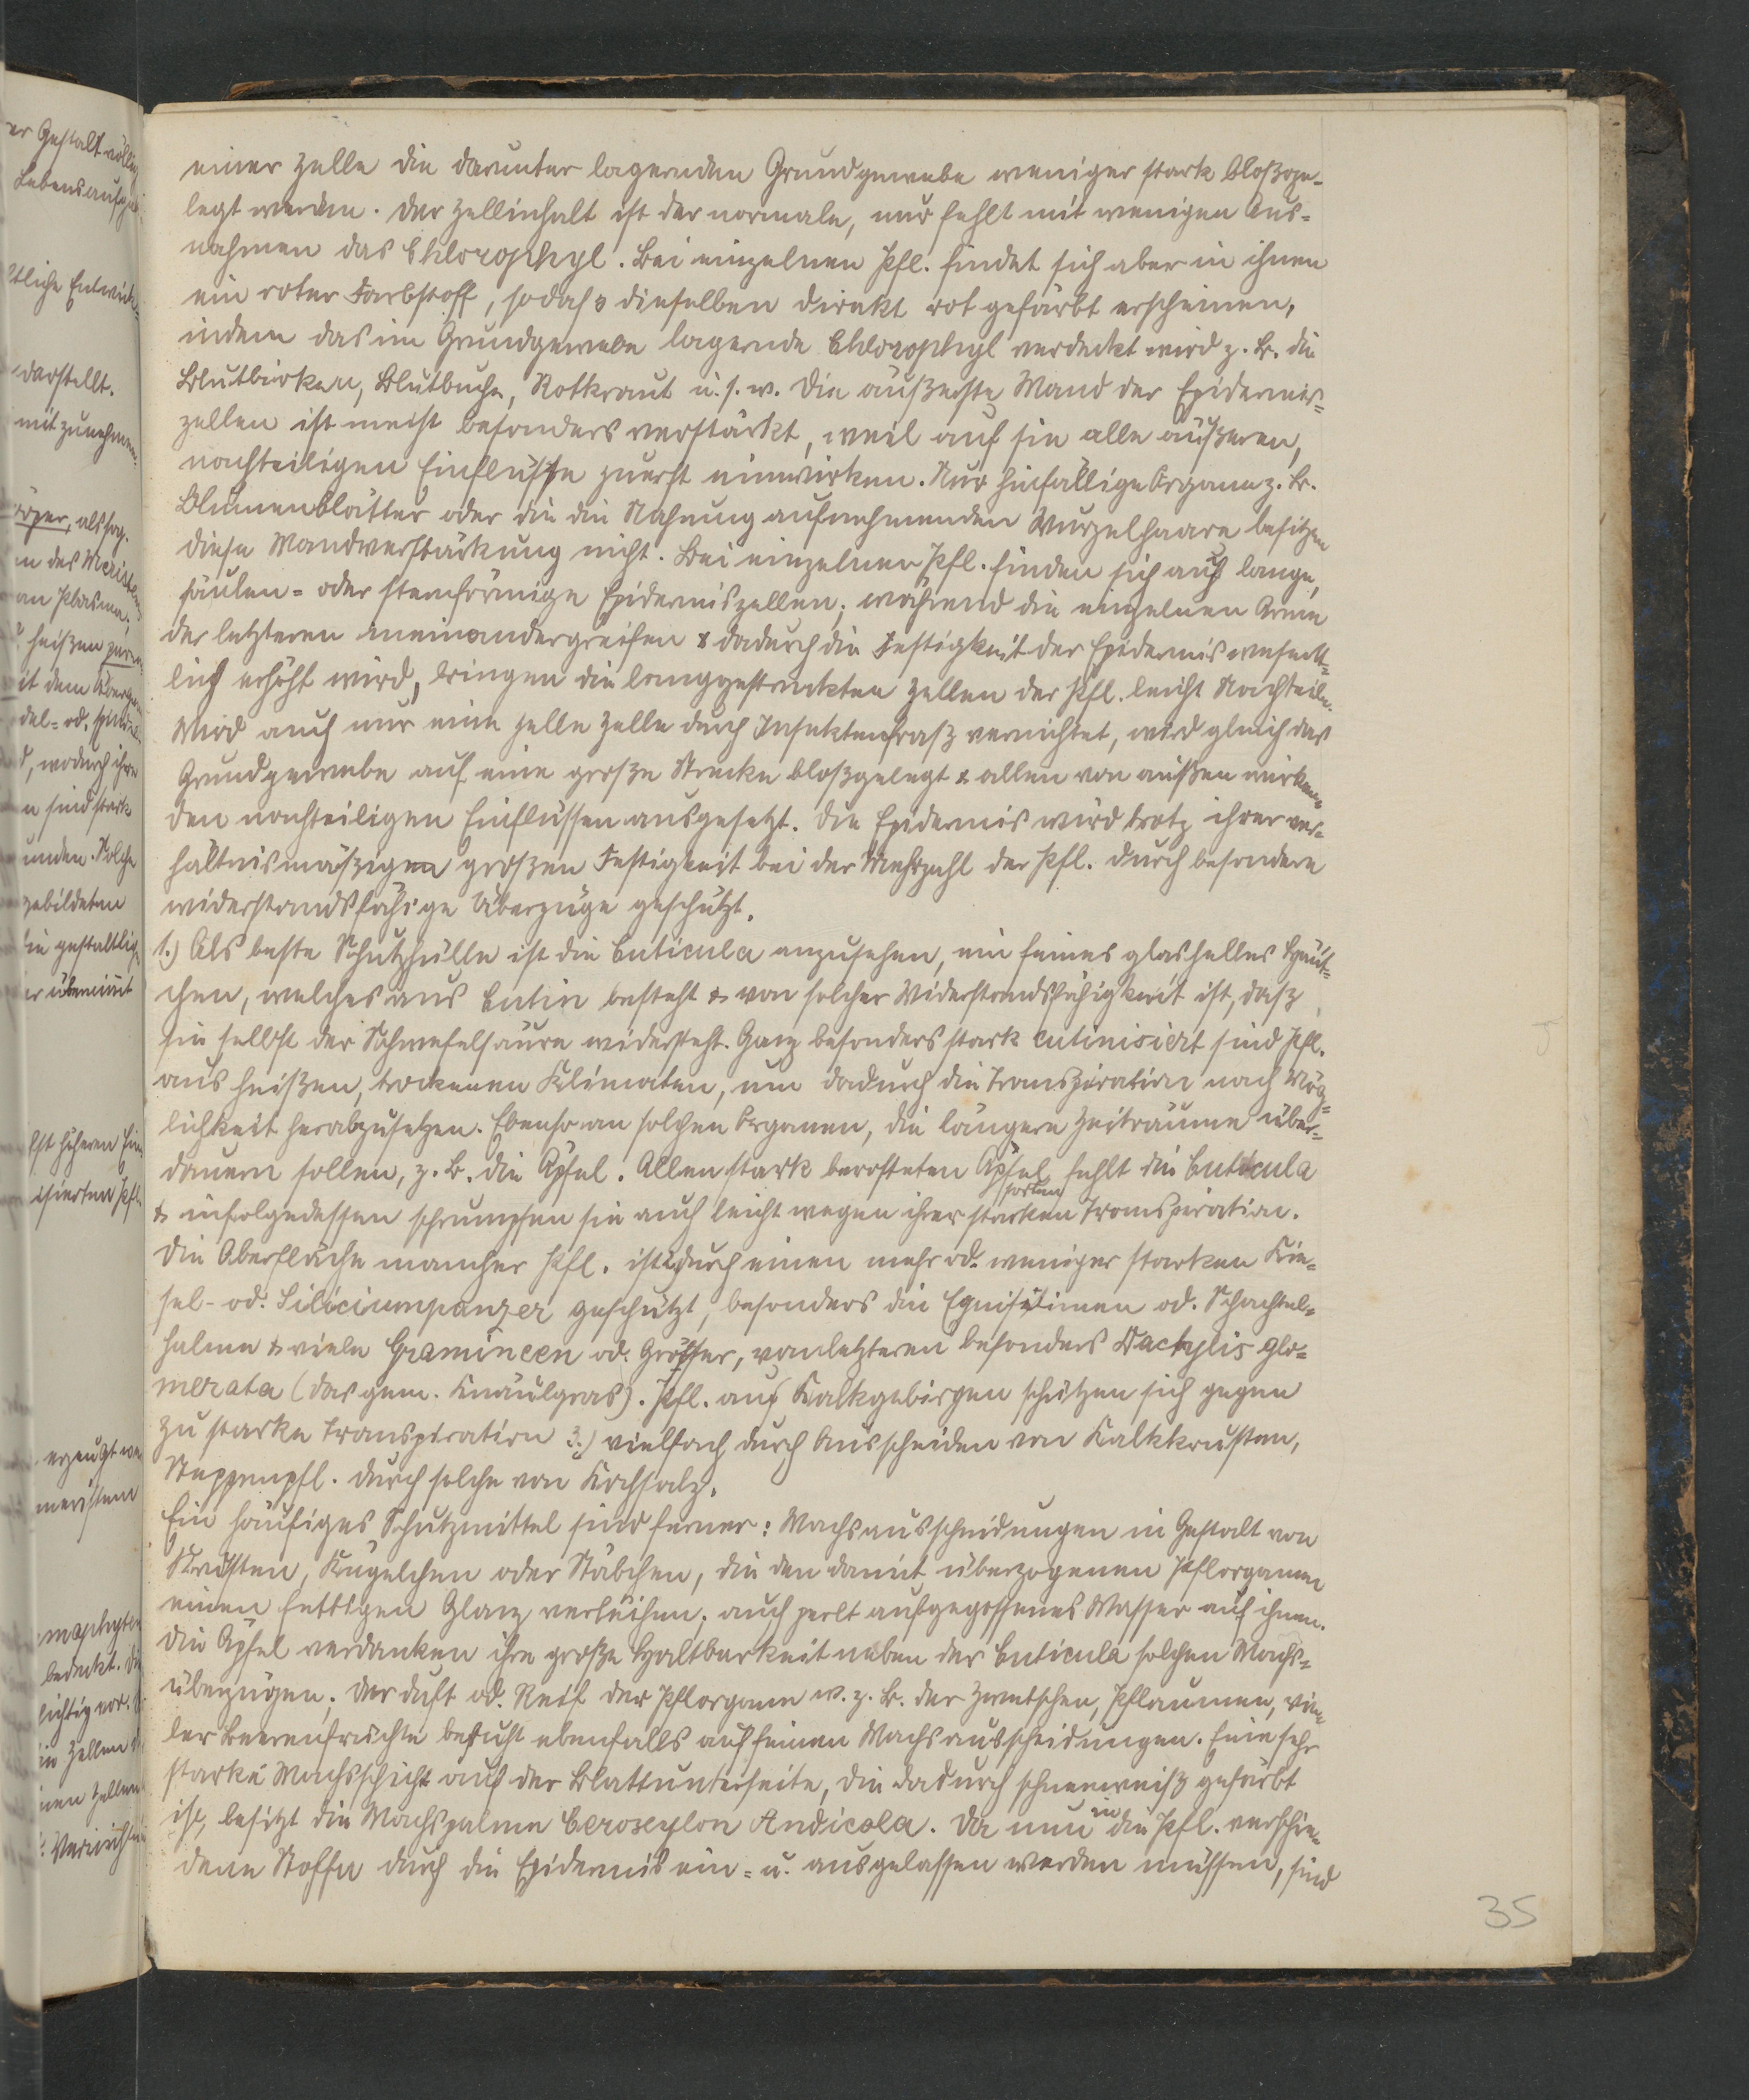 einer Zelle die darunter lagernden Grundgewebe weniger stark bloßge-
legt werden. Der Zellinhalt ist der normale, nur fehlt mit wenigen Aus-
nahmen das Chlorophyl. Bei einzelnen Pfl. findet sich aber in ihnen
ein roter Farbstoff, sodass dieselben direkt rot gefärbt erscheinen,
indem das im Grundgewebe lagernde Chlorophyl verdeckt wird z. B. die
Blutbirken, Blutbuche, Rotkraut u. s. w. Die äußerste Wand der Epidermis-
zellen ist meist besonders verstärkt, weil auf sie alle äußeren,
nachteiligen Einflüsse zuerst einwirken. Nur hinfällige Organe z. B.
Blumenblätter oder die die Nahrung aufnehmenden Wurzelhaare besitzen
diese Wandverstärkung nicht. Bei einzelnen Pfl. finden sich auch lange,
säulen- oder sternförmige Epidermiszellen; während die einzelnen Arme
der letzteren ineinandergreifen & dadurch die Festigkeit der Epidermis wesent-
lich erhöht wird, bringen die langgestreckten Zellen der Pfl. leicht Nachteile.
Wird auch nur eine zelle Zelle durch Insektenfraß vernichtet, wird gleich das
Grundgewebe auf eine große Strecke bloßgelegt & allen von außen wirken-
den nachteiligen Einflüssen ausgesetzt. Die Epidermis wird trotz ihrer ver-
hältnismäßigen großen Festigkeit bei der Mehrzahl der Pfl. durch besondere
widerstandsfähige Überzüge geschützt.
1.) Als beste Schutzhülle ist die Cuticula anzusehen, ein feines glashelles Häut-
chen, welches aus Cutin besteht & von solcher Widerstandsfähigkeit ist, daß
sie selbst der Schwefelsäure widersteht. Ganz besonders stark cutinisiert sind Pfl.
aus heißen, trockenen Klimaten, um dadurch die Transpiration nach Mög-
lichkeit herabzusetzen. Ebenso an solchen Organen, die längere Zeiträume über-
dauern sollen, z. B. die Äpfel. Allen stark berosteten Apfel fehlt die Cuticula
sorten
& infolgedessen schrumpfen sie auch leicht wegen ihrer starken Transpiration.
Die Oberfläche mancher Pfl. ist 2.) durch einen mehr od. weniger starken Kie-
sel- od. Siliciumpanzer geschützt, besonders die Equisetineen od. Schachtel-
halme & viele Gramineen od. Gräser, von letzteren besonders Dactylis glo-
merata (das gem. Knäulgras). Pfl. auf Kalkgebirgen schützen sich gegen
zu starke Transpiration 3.) vielfach durch Ausscheiden von Kalkkrusten,
Steppenpfl. durch solche von Kochsalz.
Ein häufiges Schutzmittel sind ferner: Wachsausscheidungen in Gestalt von
Krusten, Kügelchen oder Stäbchen, die den damit überzogenen Pflorganen
einen fettigen Glanz verleihen; auch perlt aufgegossenes Wasser auf ihnen.
Die Äpfel verdanken ihre große Haltbarkeit neben der Cuticula solchen Wachs-
überzügen; der Duft od. Reif der Pflorgane w. z. B. der Zwetschen, Pflaumen, vie-
ler Beerenfrüchte beruht ebenfalls auf feinen Wachsausscheidungen. Eine sehr
starke Wachsschicht auf der Blattunterseite, die dadurch schneeweiß gefärbt
ist, besitzt die Wachspalme Ceroxylon Andicola. Da nun in die Pfl. verschie-
dene Stoffe durch die Epidermis ein- u. ausgelassen werden müssen, sind
35